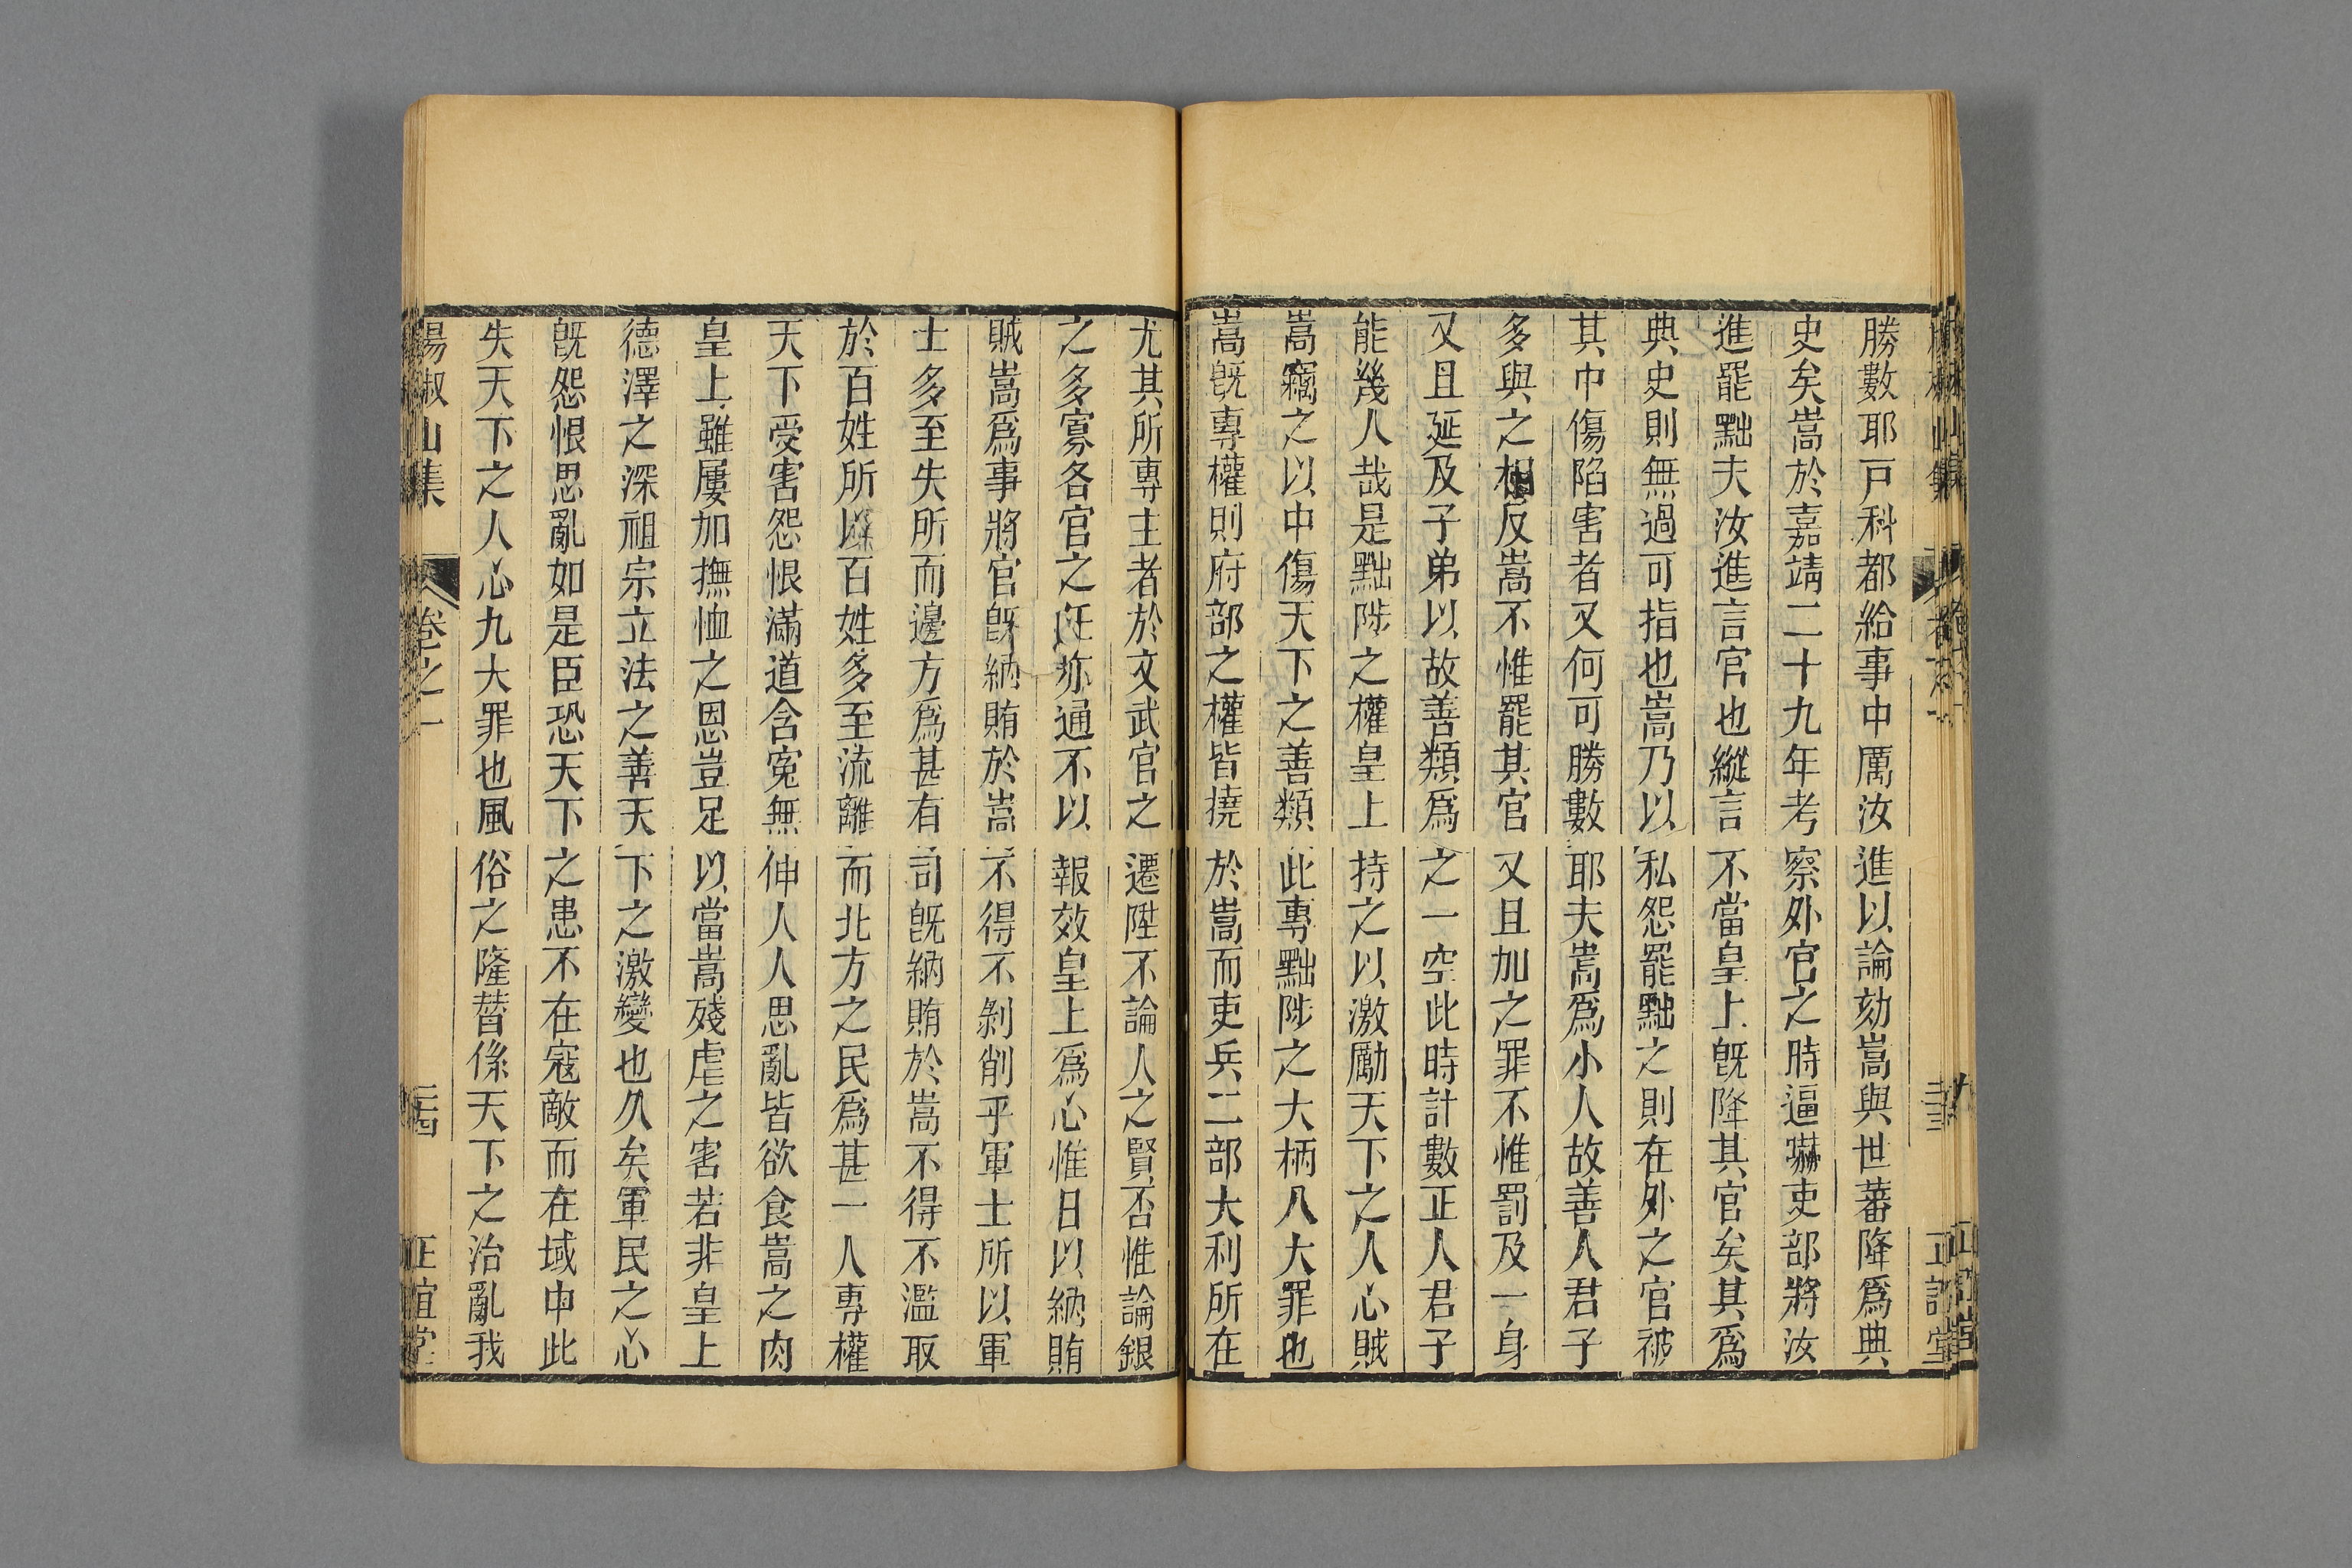 勝數耶戸科都給事中厲汝進以論劾嵩與世蕃降爲典
史矣嵩於嘉靖二十九年考察外官之時逼嚇吏部將汝
進罷黜夫汝進言官也縱言不當皇上旣降其官矣其爲
典史則無過可指也嵩乃以私怨罷黜之則在外之官被
其中傷陷害者又何可勝數耶夫嵩爲小人故善人君子
多與之相反嵩不惟罷其官又且加之罪不惟罰及一身
又且延及子弟以故善類爲之一空此時計數正人君子
能幾人哉是黜陟之權皇上持之以激勵天下之人心賊
嵩竊之以中傷天下之善類此專黜陟之大柄八大罪也
嵩旣專權則府部之權皆撓於嵩而吏兵二部大利所在
尤其所專主者於文武官之遷陞不論人之賢否惟論銀
之多寡各官之任亦通不以報效皇上爲心惟日以納賄
賊嵩爲事將官旣納賄於嵩不得不剝削乎軍士所以軍
士多至失所而邊方爲甚有司旣納賄於嵩不得不濫取
於百姓所以百姓多至流離而北方之民爲甚一人專權
天下受害怨恨滿道含寃無伸人人思亂皆欲食嵩之肉
皇上雖屢加撫恤之恩豈足以當嵩殘虐之害若非皇上
德澤之深祖宗立法之善天下之激變也久矣軍民之心
旣怨恨思亂如是臣恐天下之患不在寇敵而在域中此
失天下之人心九大罪也風俗之隆替係天下之治亂我
楊椒山集 卷之一 二十四 正誼堂